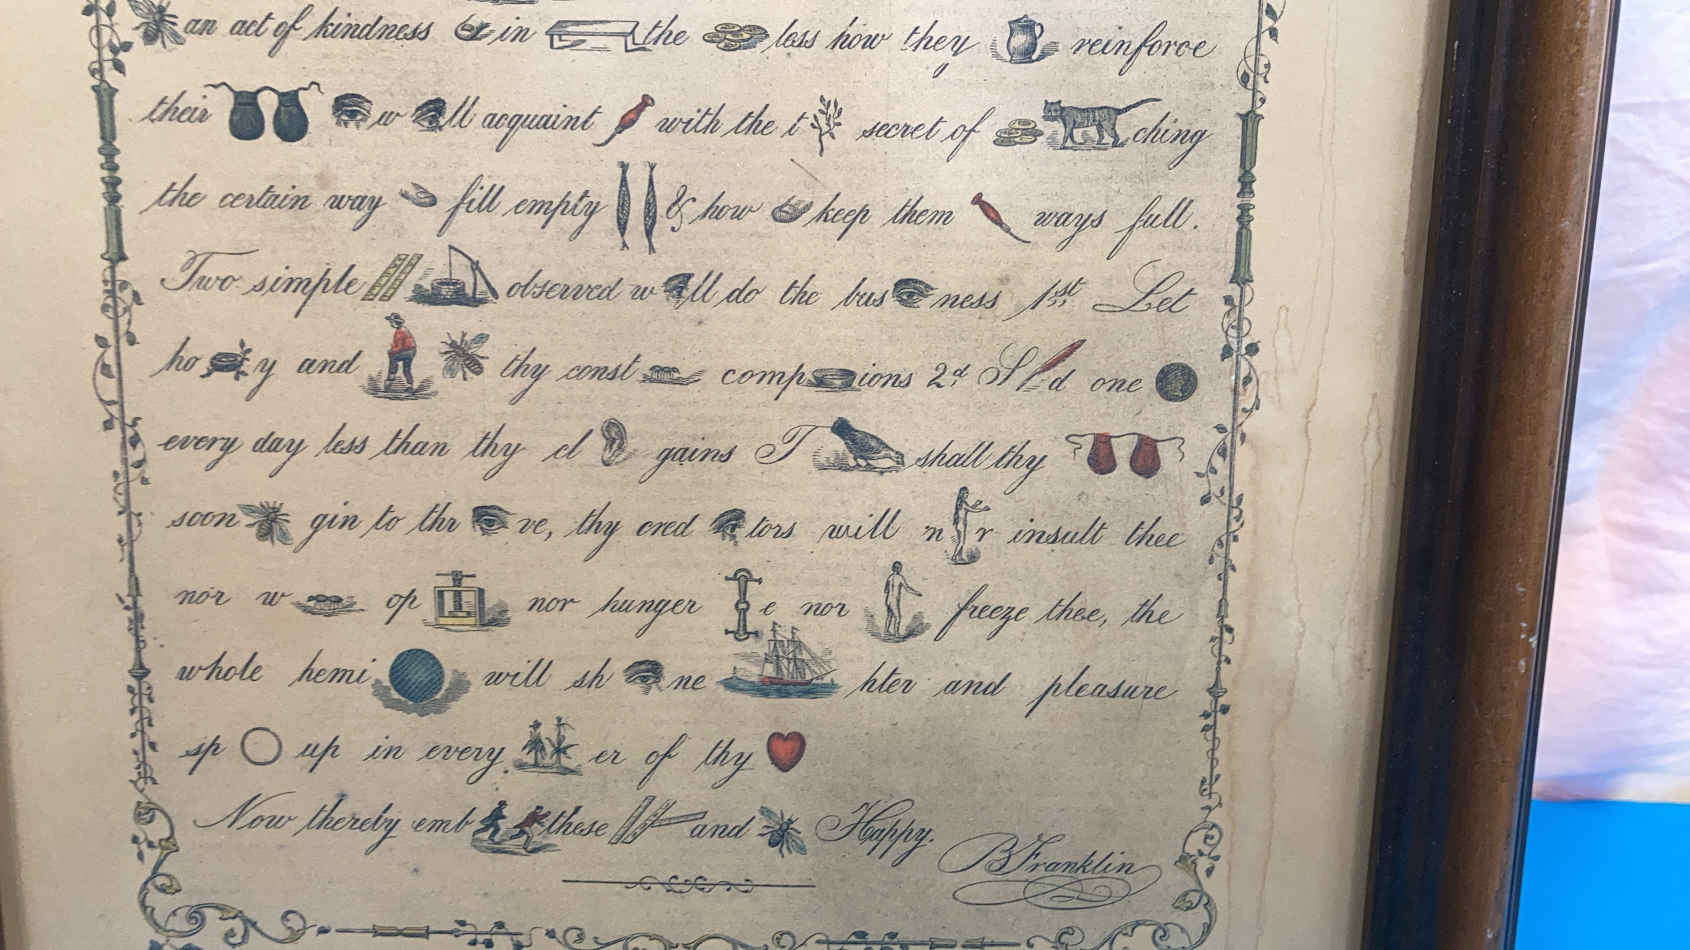 an act of kindness in the less how they reinforce
their w ll acquaint with the t secret of ching
the certain way fill empty & how keep them ways full.
Two simple observed w ll do the bus ness 1st Let
ho y and thy const comp ions 2d S d one
every day less than thy cl gains T shall thy
soon gin to thr ve, thy cred tors will n r insult thee
nor w op nor hunger e nor freeze thee, the
whole hemi will sh ne hter and pleasure
sp up in every er of thy
Now thereby emb these and Happy.
B Franklin